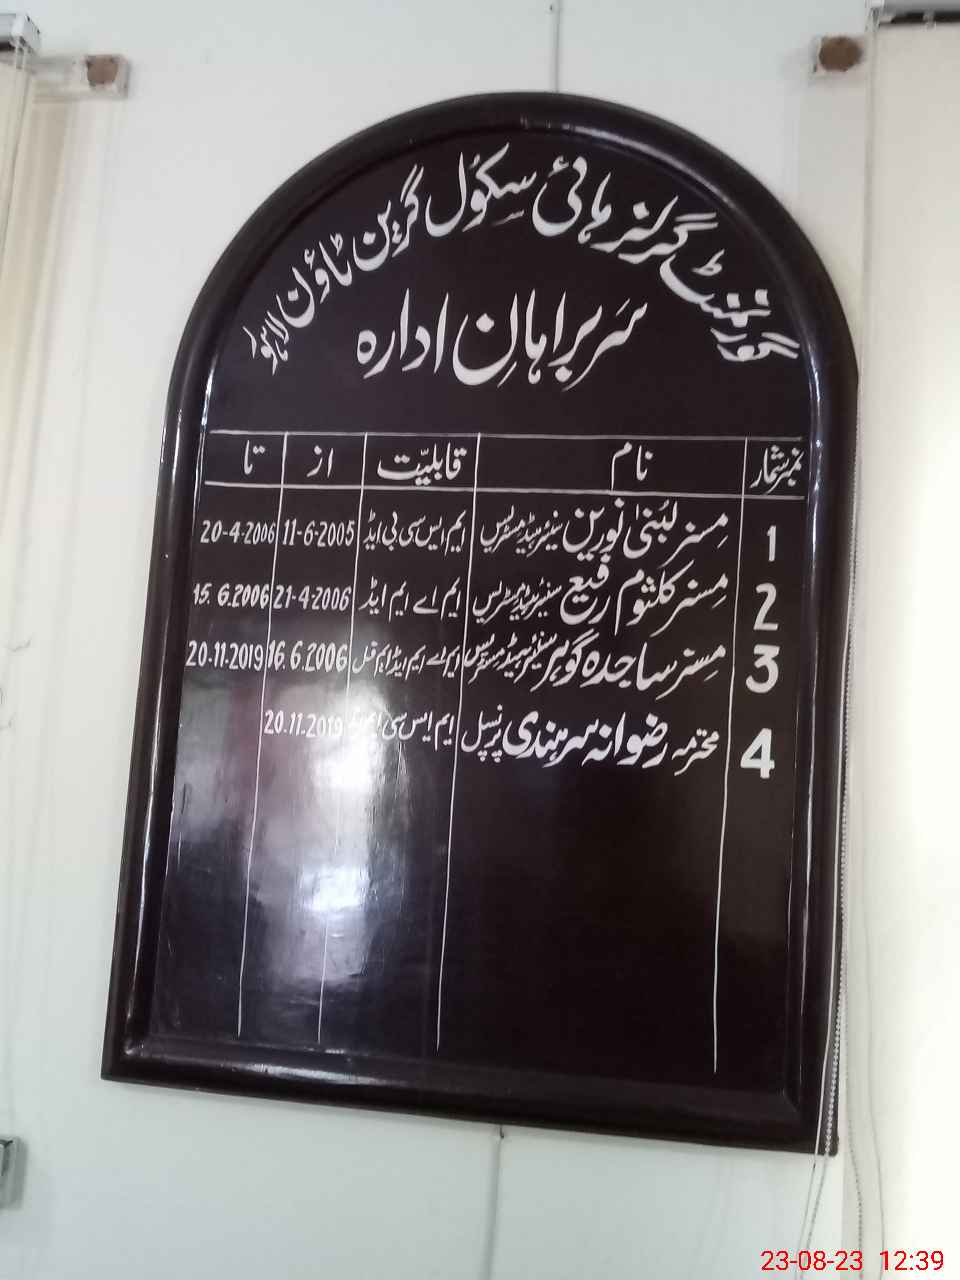 گورنمنٹ گرلز ہائی سکول گرین ٹاؤن لاہور
سربراہانِ ادارہ
نمبر شمار نام قابلیّت از تا
1 مسز لبُنیٰ نورین سینئر ہیڈ مسٹریس ایم ایس سی بی ایڈ 11-6-2005 20-4-2006
2 مسز کلثوم رفیع سینئر ہیڈ مسٹریس ایم اے ایم ایڈ 21-4-2006 15.6.2006
3 مسز ساجدہ گوہر سینئر ہیڈ مسٹریس ایم اے ایم ایڈ ایم فل 16.6.2006 20-11-2019
4 محترمہ رضوانہ سرہندی پرنسپل ایم ایس سی 20.11.2019
23-08-23 12:39